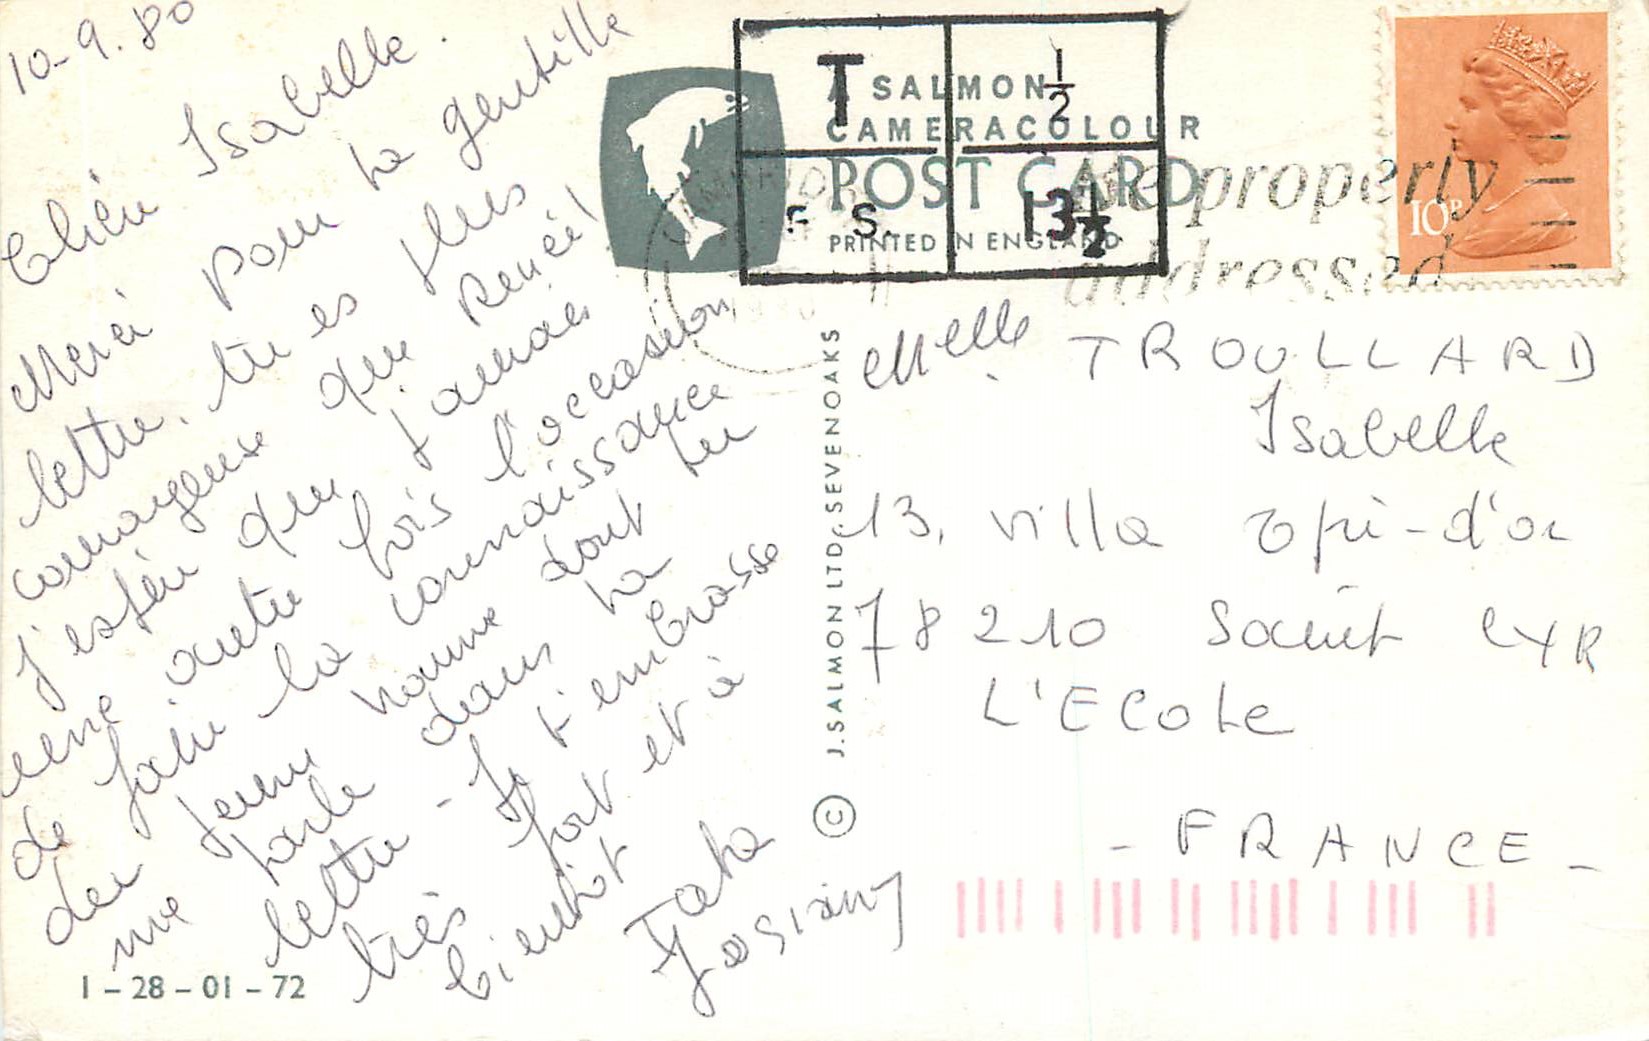 10-9.80
Chère Isabelle.
Merci pour ta gentille
lettre, tu es plus
courageuse que Renée!
J'espère que jamais
une autre fois l'occasion
de faire la connaissance
du jeune homme dont tu
me parle dans ta
lettre - Je t'embrasse
très fort et à
bientôt
Tata
Josiany
1-28-01-72
A SALMON
CAMERACOLOUR
POST CARD
PRINTED IN ENGLAND
T 1/2
F. S. 13 1/2
be properly
addressed
10P
© J. SALMON LTD, SEVENOAKS
Melle TROULLARD
Isabelle
13, villa Epi-d'or
78210 Saint CYR
L'ECOLE
- FRANCE -